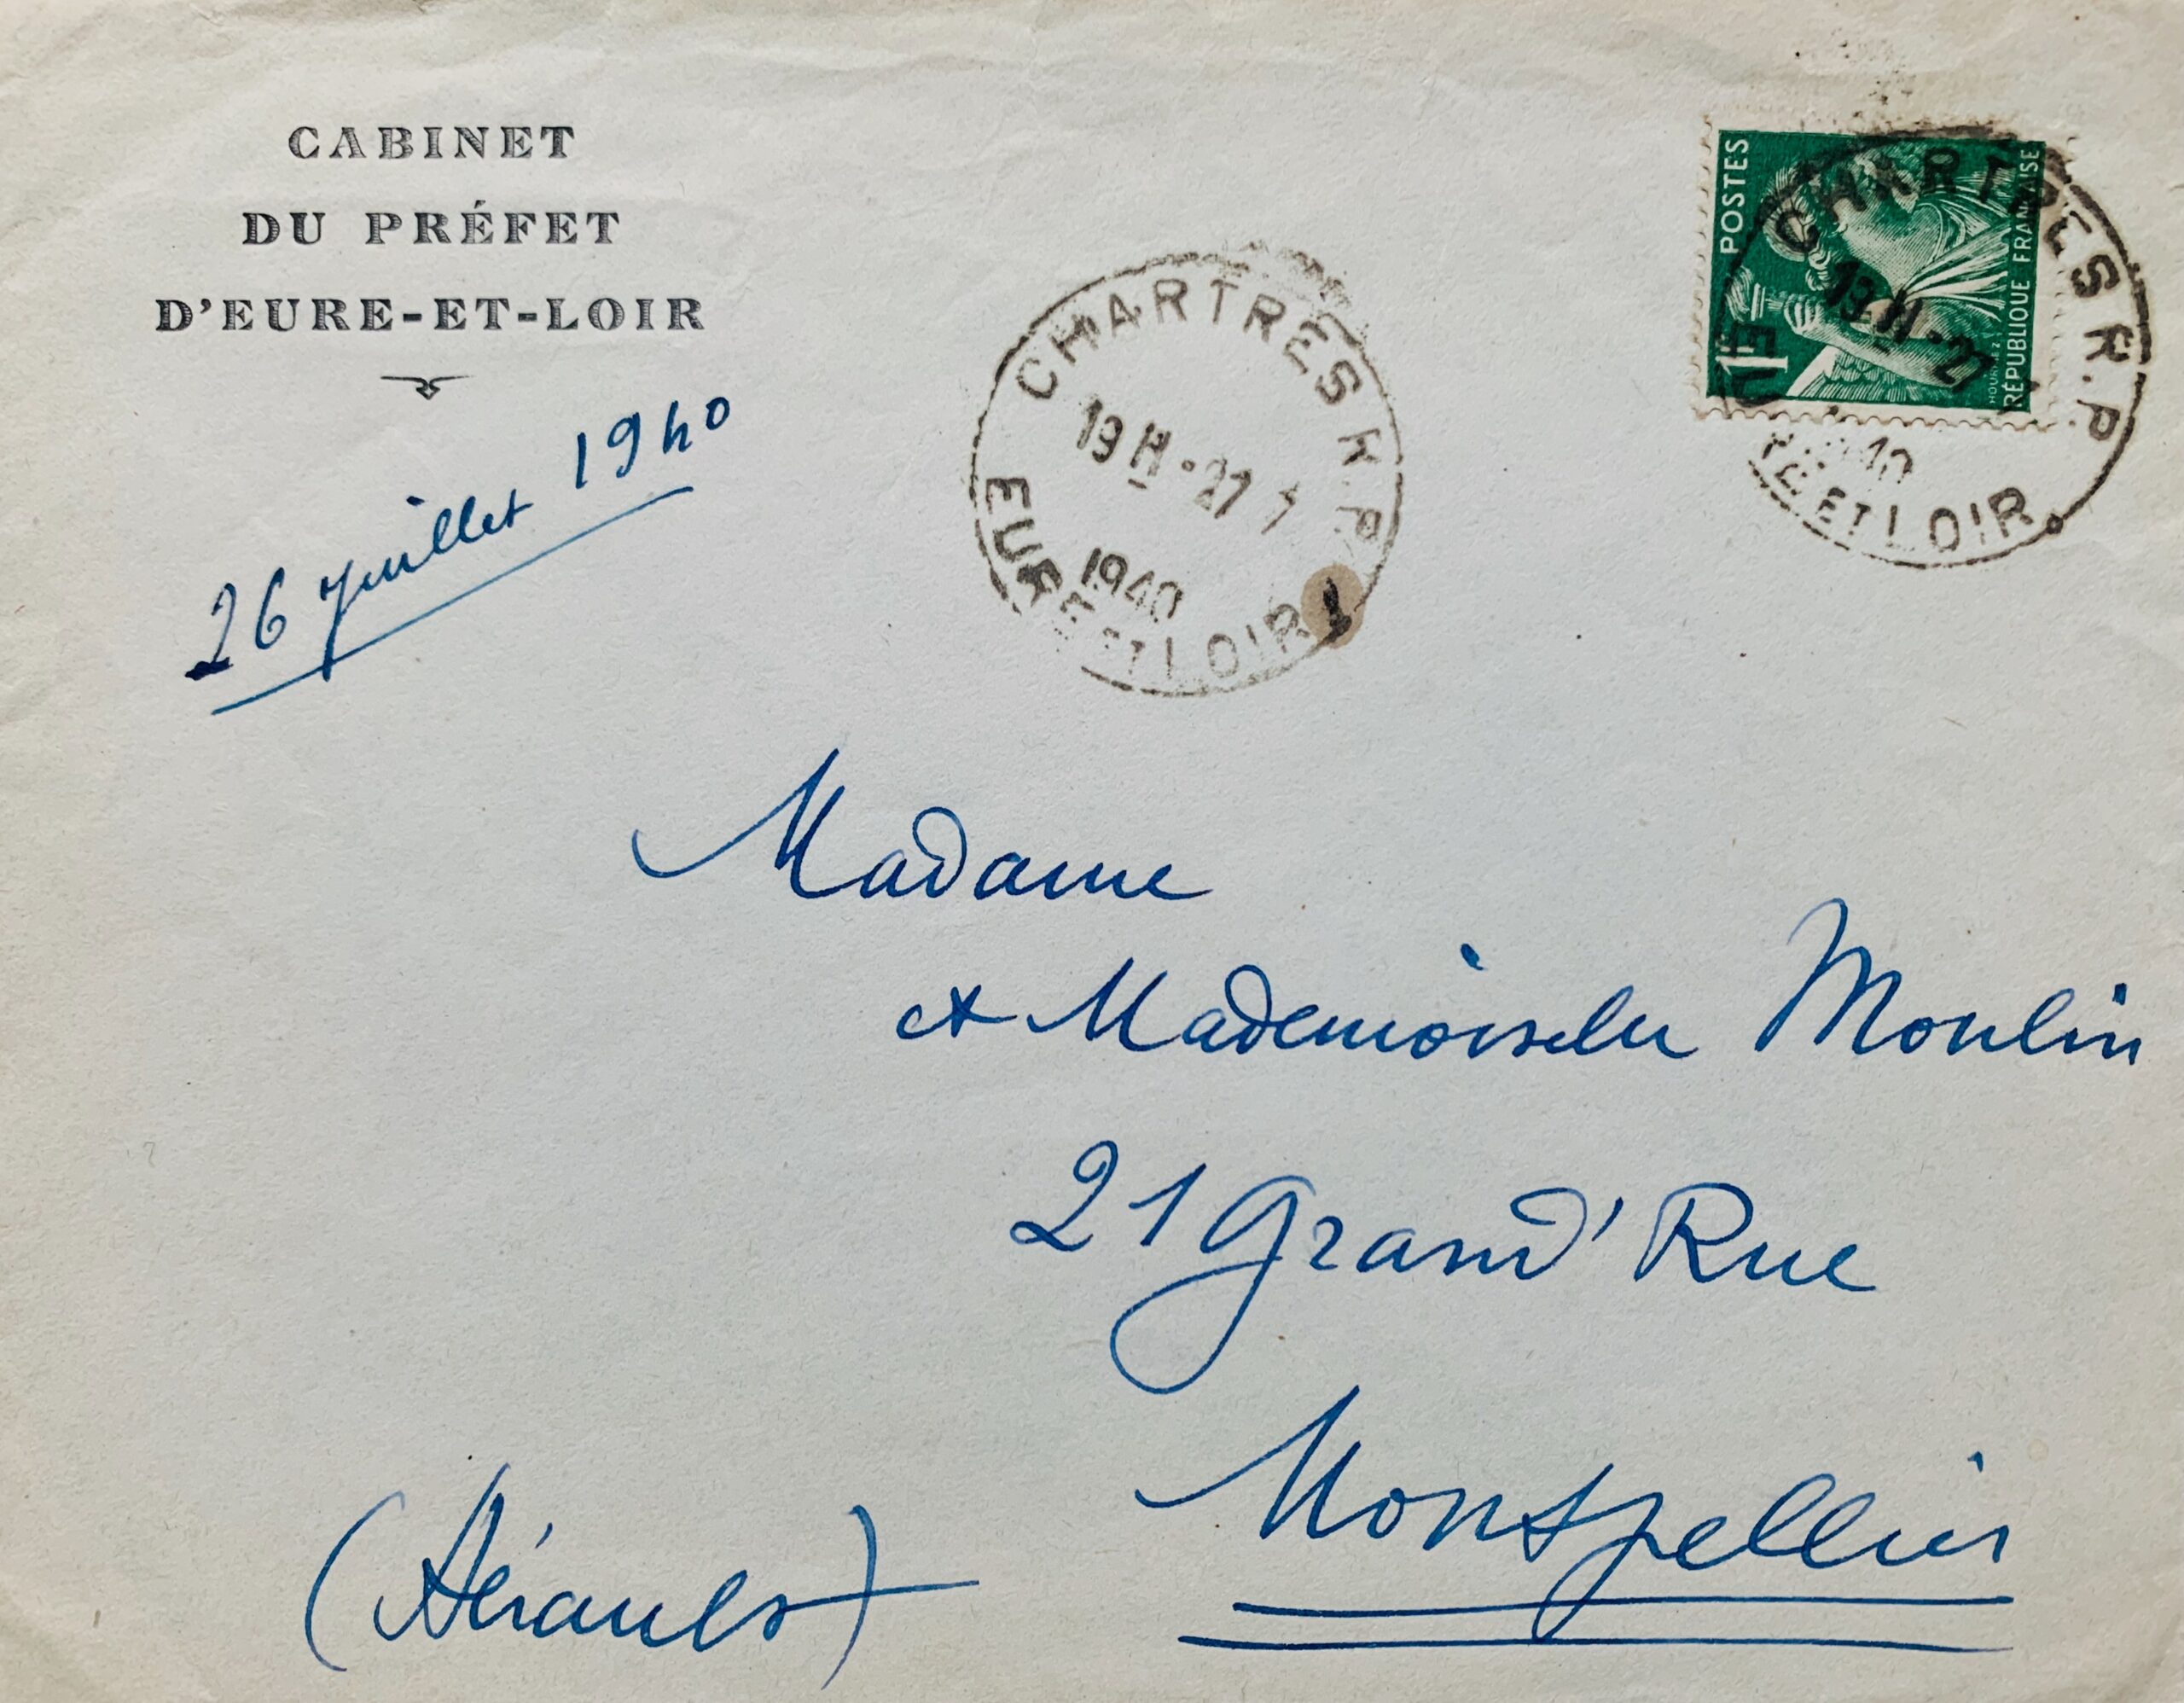 CABINET
DU PRÉFET
D'EURE-ET-LOIR
26 juillet 1940
CHARTRES R.P.
19 H - 27 7
1940
EURE ET LOIR
POSTES
RÉPUBLIQUE FRANÇAISE
1F
CHARTRES R.P.
19 H - 27
40
EURE ET LOIR
Madame
et Mademoiselle Moulin
21 Grand' Rue
Montpellier
(Hérault)